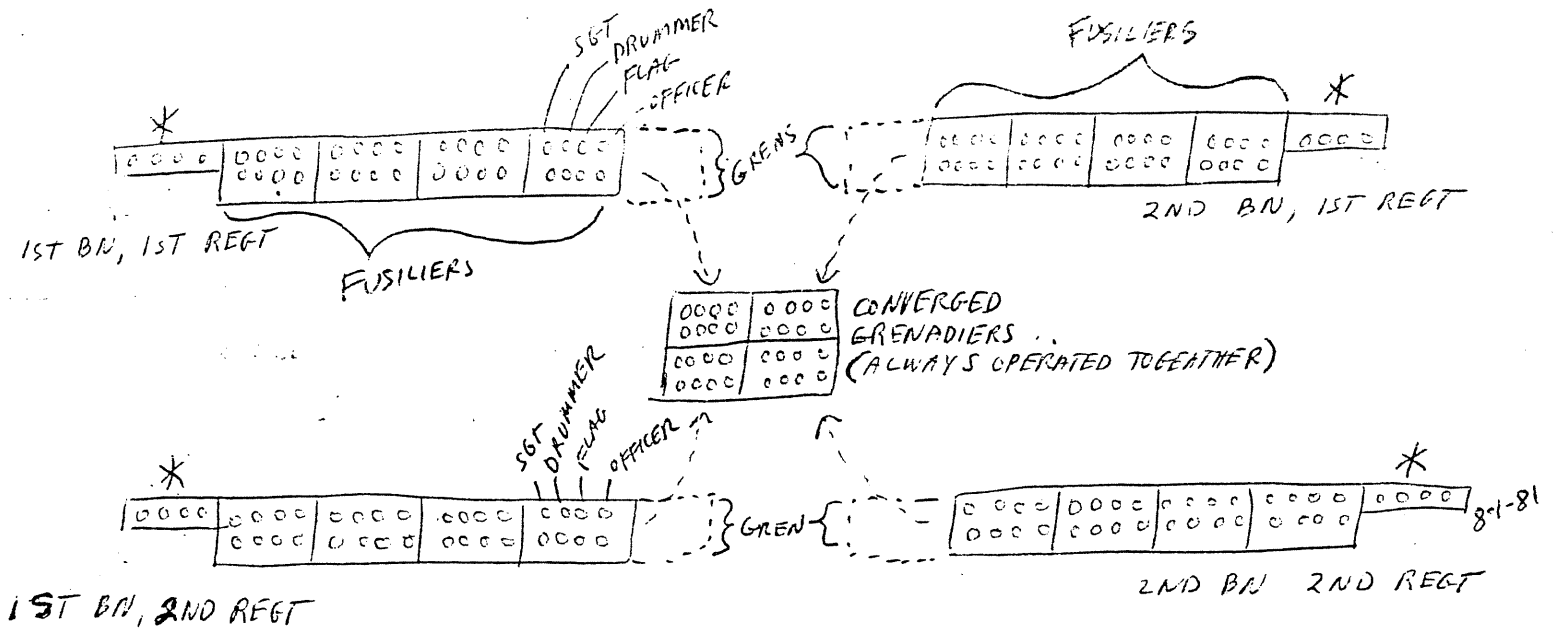 SGT
DRUMMER
FLAG
OFFICER
FUSILIERS
*
*
GRENS
1ST BN, 1ST REGT
2ND BN, 1ST REGT
FUSILIERS
CONVERGED
GRENADIERS ..
(ALWAYS OPERATED TOGEATHER)
SGT
DRUMMER
FLAG
OFFICER
*
*
GREN
8-1-81
1ST BN, 2ND REGT
2ND BN 2ND REGT